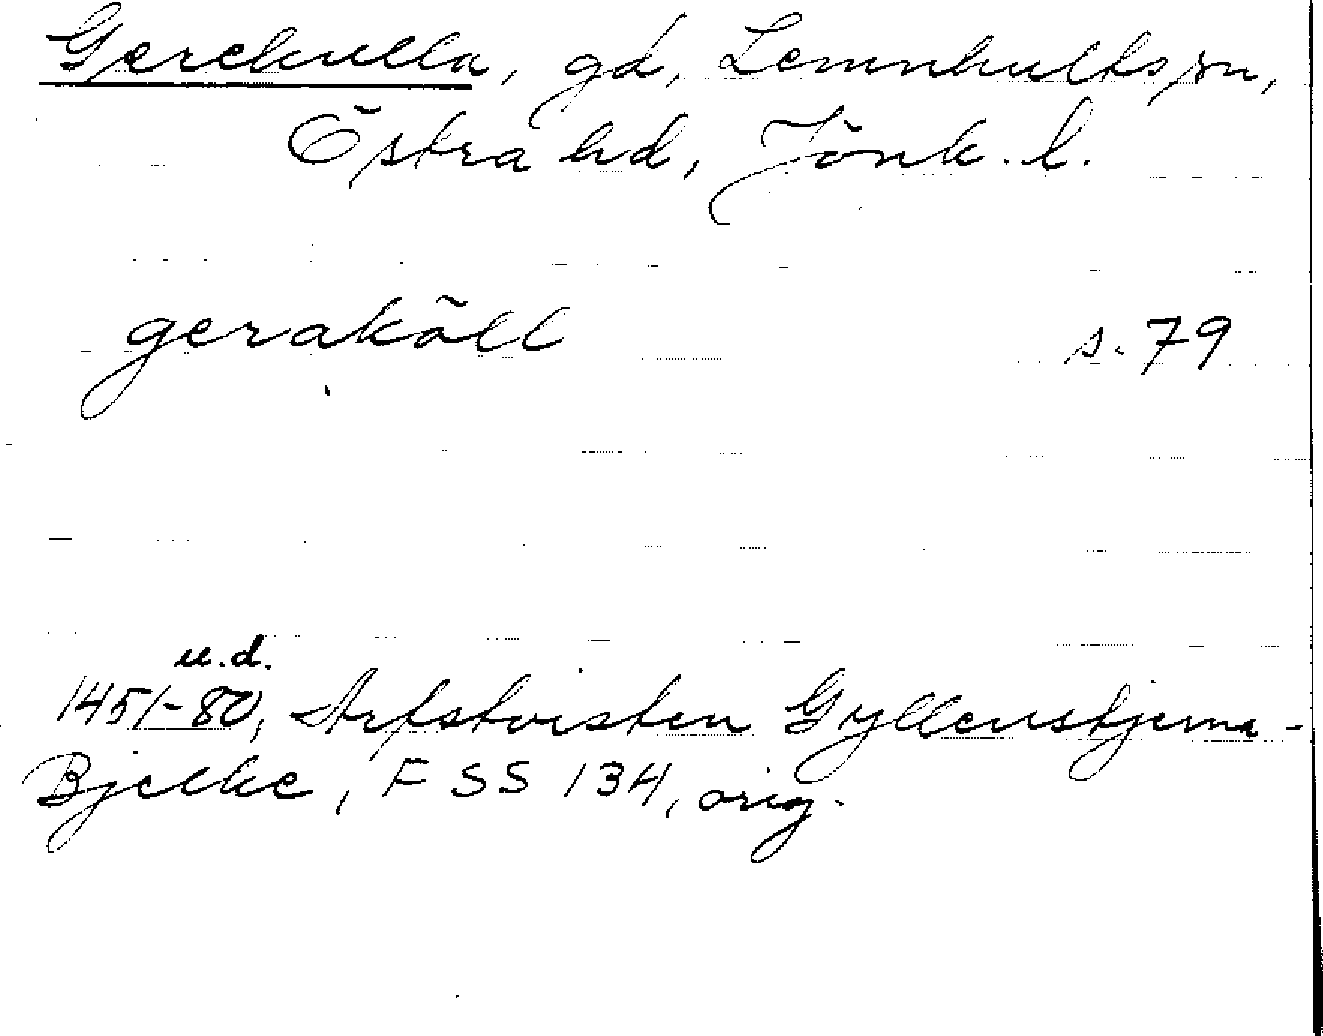 Gerekulla, gd, Lemnhults sn,
Östra hd, Jönk. l.
geraköll s. 79
u.d.
1451-80, Arfstvisten Gyllenstjerna-
Bjelke, F SS 134, orig.